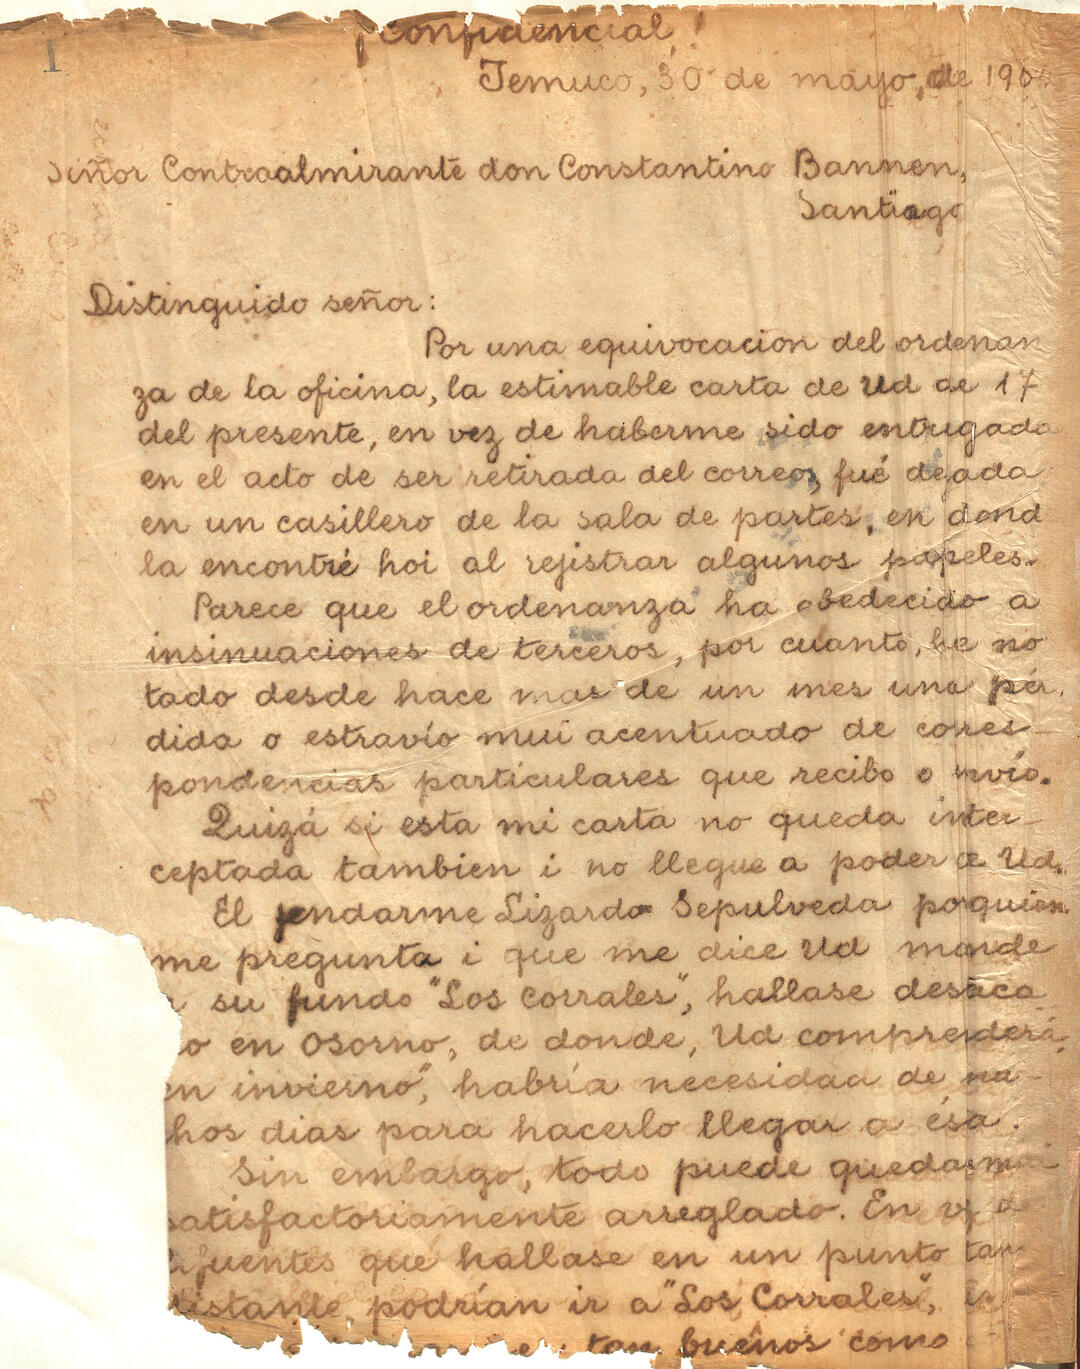 1
¡Confidencial!
Temuco, 30 de mayo, de 190
Señor Contraalmirante don Constantino Bannen,
Santiago
Distinguido señor:
Por una equivocacion del ordenan
za de la oficina, la estimable carta de Ud de 17
del presente, en vez de haberme sido entregada
en el acto de ser retirada del correo, fué dejada
en un casillero de la sala de partes, en dond
la encontré hoi al rejistrar algunos papeles.
Parece que el ordenanza ha obedecido a
insinuaciones de terceros, por cuanto, he no
tado desde hace mas de un mes una pér,
dida o estravío mui acentuado de corres-
pondencias particulares que recibo o nvío.
Quizá si esta mi carta no queda inter-
ceptada tambien i no llegue a poder de Ud.
El jendarme Lizardo Sepulveda por quien
me pregunta i que me dice Ud mande
su fundo "Los Corrales", hallase destaca
o en Osorno, de donde, Ud comprenderá,
en invierno", habría necesidad de
hos dias para hacerlo llegar a ésa.
Sin embargo, todo puede quedar mui
satisfactoriamente arreglado. En vz d
ifuentes que hallase en un punto tan
distante, podrían ir a "Los Corrales",
tan buenos como